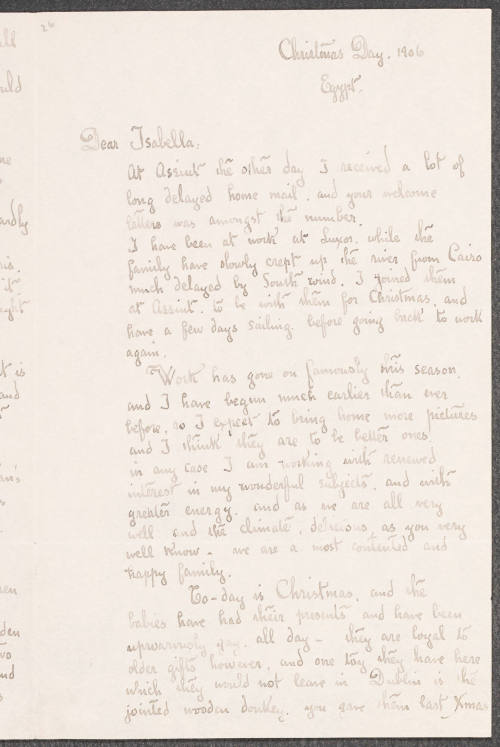 26
Christmas Day. 1906
Egypt.
Dear Isabella,
At Assiut the other day I received a lot of
long delayed home mail, and your welcome
letters was amongst the number.
I have been at work at Luxor, while the
family have slowly crept up the river from Cairo
much delayed by South wind. I joined them
at Assiut, to be with them for Christmas, and
have a few days sailing before going back to work
again.
Work has gone on famously this season,
and I have begun much earlier than ever
before, so I expect to bring home more pictures
and I think they are to be better ones
in any case I am working with renewed
interest in my wonderful subjects, and with
greater energy. and as we are all very
well and the climate, delicious, as you very
well know - we are a most contented and
happy family.
To-day is Christmas, and the
babies have had their presents and have been
gay, all day - they are loyal to
older gifts however, and one toy they have here
which they would not leave in Dublin is the
jointed wooden donkey, you gave them last Xmas